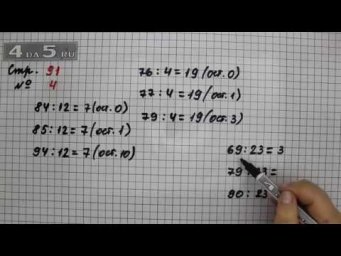 4 DA 5.RU
Стр. 91
№ 4
84 : 12 = 7 (ост. 0)
85 : 12 = 7 (ост. 1)
94 : 12 = 7 (ост. 10)
76 : 4 = 19 (ост. 0)
77 : 4 = 19 (ост. 1)
79 : 4 = 19 (ост. 3)
69 : 23 = 3
79 : =
90 : 23